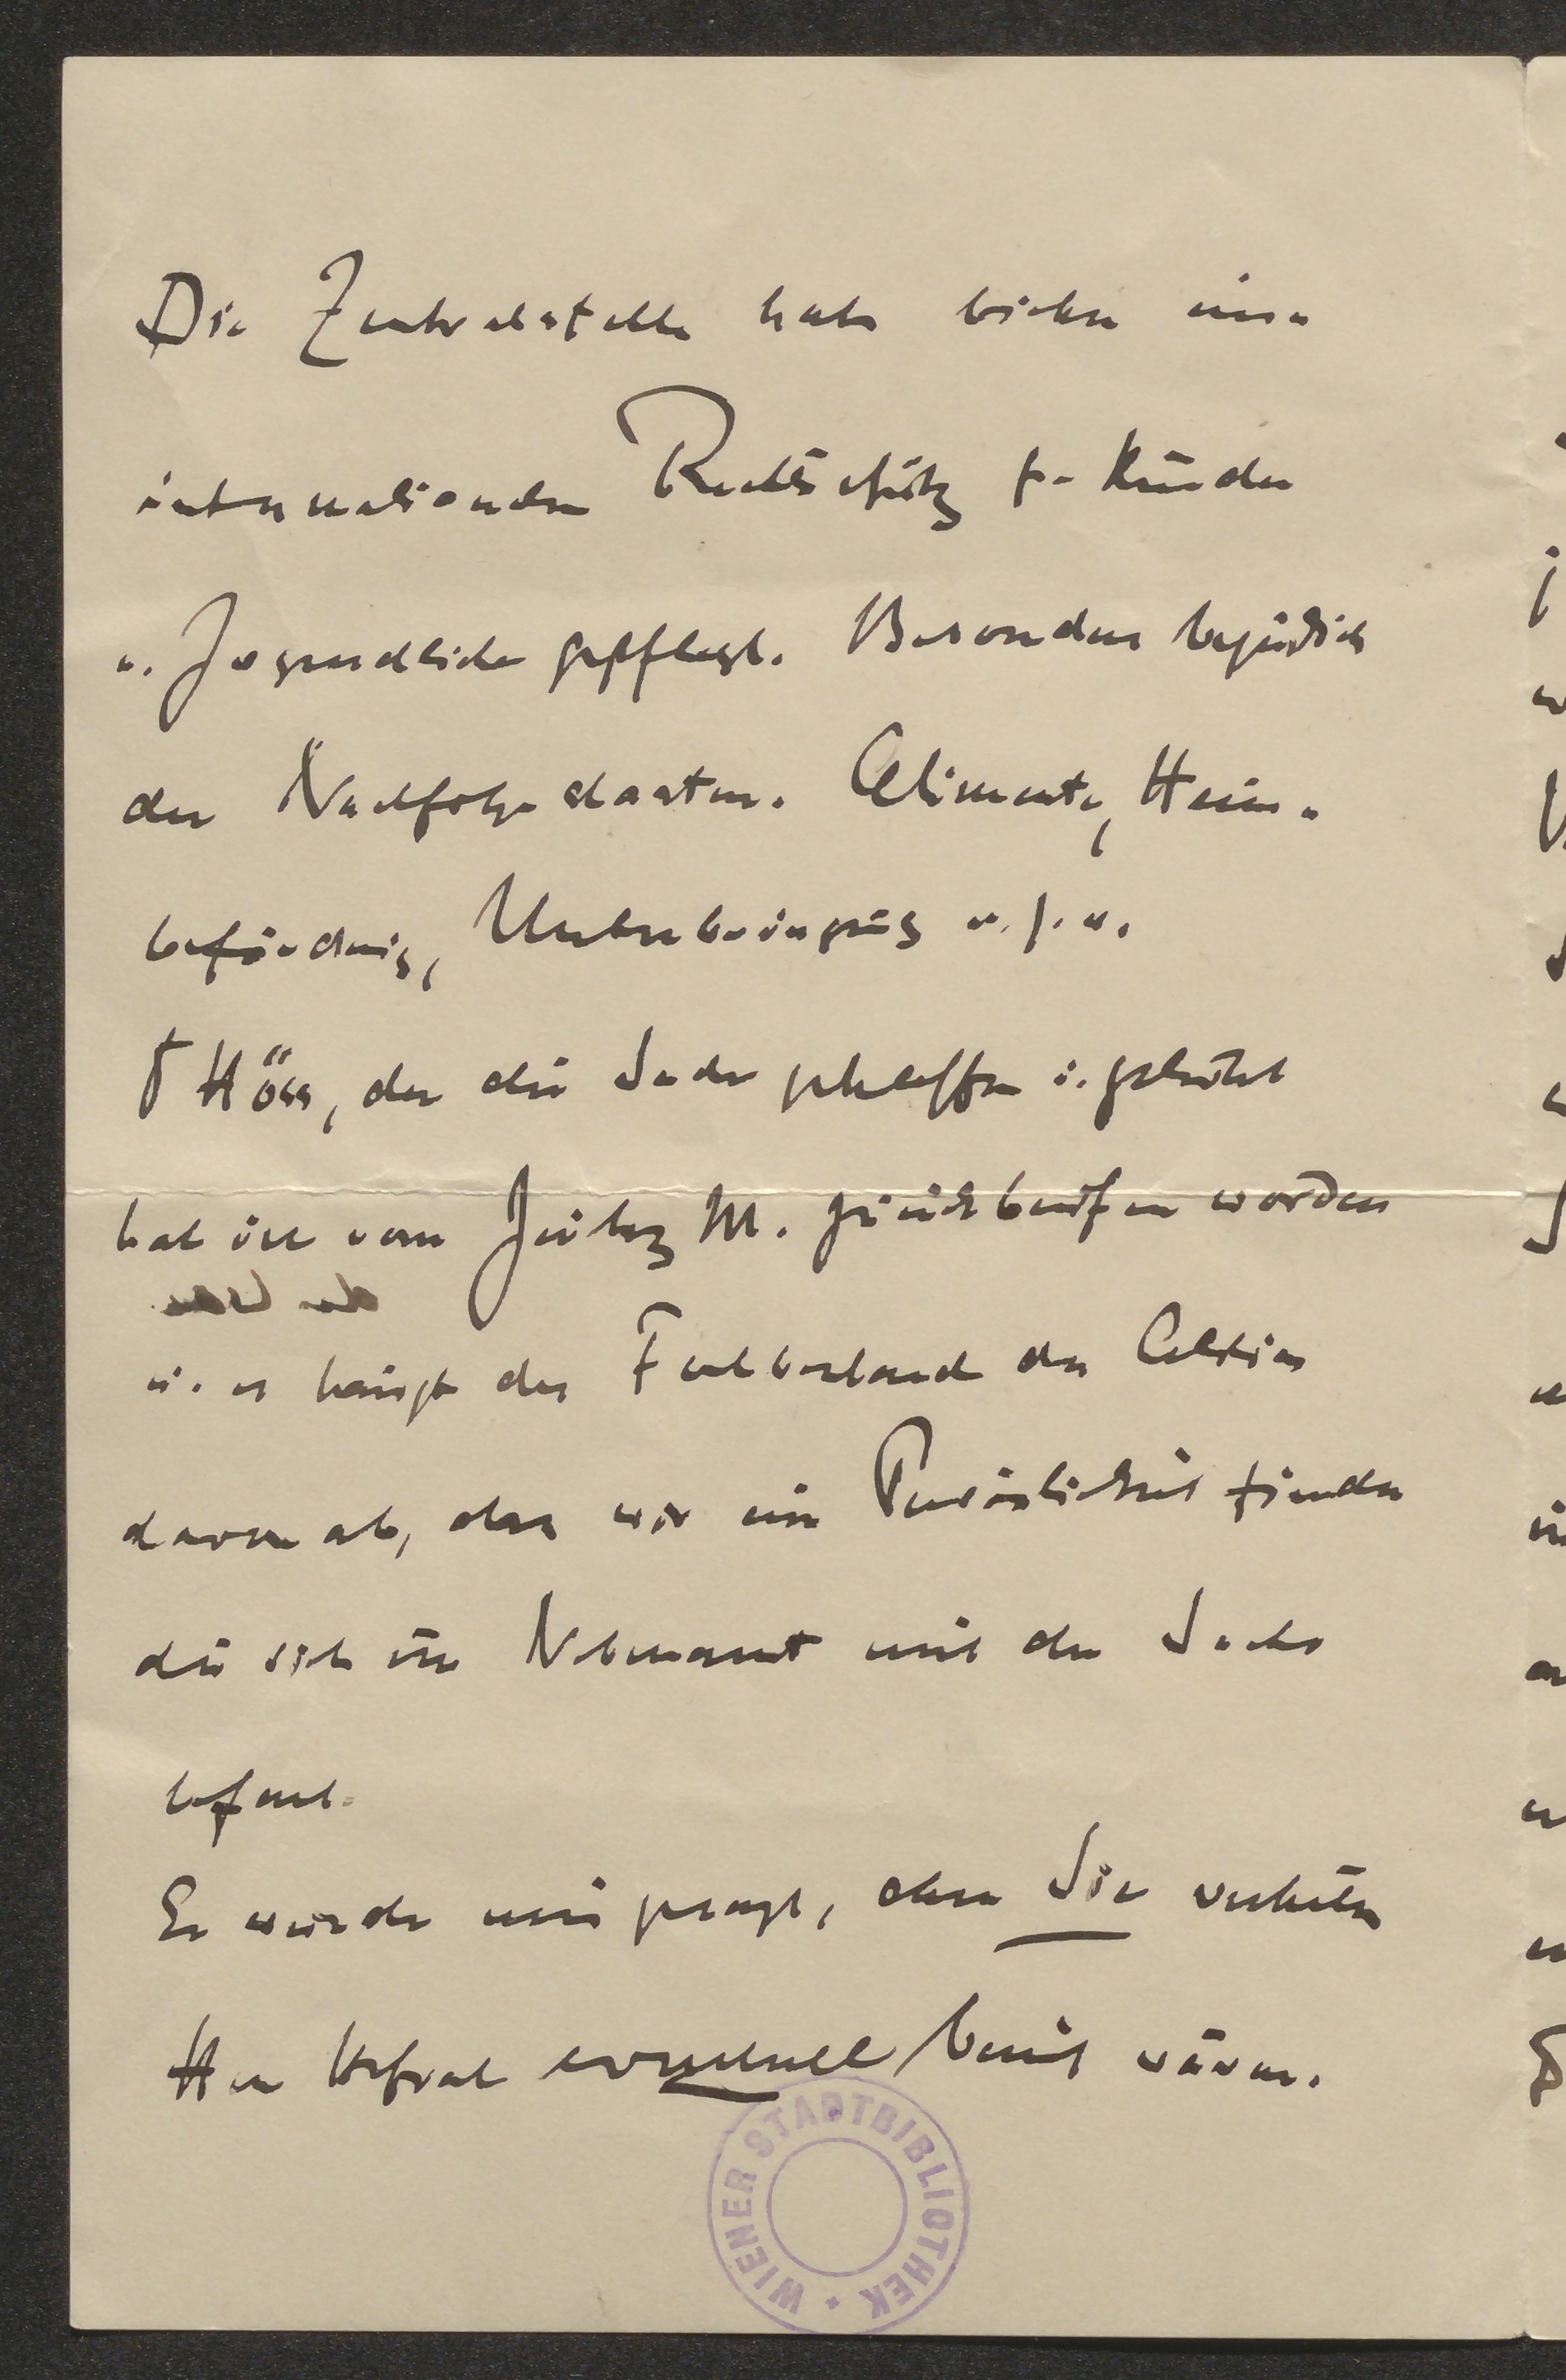 Die Zentralstelle hat bisher einen
internationalen Rechtsschutz f. Kinder
u. Jugendliche gepflegt. Besonders bezüglich
der Nachfolgestaaten. Alimente, Heim-
beförderung, Unterbringung u.s.w.
Höss, der die Sache geschaffen u. geleitet
hat ist vom Justiz M. zurückberufen worden
u. es hängt der Fortbestand der Aktion
davon ab, dass wir eine Persönlichkeit finden
die sich im Nebenamt mit der Sache
befasst.
Es wurde mir gesagt, dass Sie verehrter
Herr Hofrat eventuell bereit wären.
WIENER STADTBIBLIOTHEK